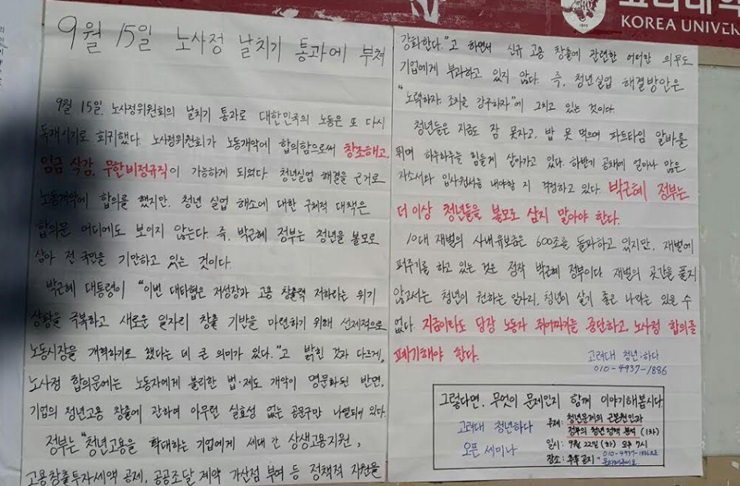 고려대학
KOREA UNIVER
9월 15일 노사정 날치기 통과에 부쳐
9월 15일, 노사정위원회의 날치기 통과로 대한민국의 노동은 또 다시
독재시대로 회귀했다. 노사정위원회가 노동개악에 합의함으로써 창조해고,
임금 삭감, 무한비정규직이 가능하게 되었다. 청년실업 해결을 근거로
노동개악에 합의를 했지만, 청년 실업 해소에 대한 구체적 대책은
합의문 어디에도 보이지 않는다. 즉, 박근혜 정부는 청년을 볼모로
삼아 전 국민을 기만하고 있는 것이다.
박근혜 대통령이 "이번 대타협은 저성장과 고용 창출력 저하라는 위기
상황을 극복하고 새로운 일자리 창출 기반을 마련하기 위해 선제적으로
노동시장을 개혁하기로 했다는 데 큰 의미가 있다."고 밝힌 것과 다르게,
노사정 합의문에는 노동자에게 불리한 법·제도 개악이 명문화된 반면,
기업의 청년고용 창출에 관하여 아무런 실효성 없는 공문구만 나열되어 있다.
정부는 "청년고용을 확대하는 기업에게 세대 간 상생고용지원,
고용창출투자세액 공제, 공공조달 계약 가산점 부여 등 정책적 지원을
강화한다."고 하면서 신규 고용 창출에 관련한 어떠한 의무도
기업에게 부과하고 있지 않다. 즉, 청년실업 해결방안은
"노력하자. 조치를 강구하자"에 그치고 있는 것이다.
청년들은 지금도 잠 못자고, 밥 못 먹으며 파트타임 알바를
뛰며 하루하루를 힘들게 살아가고 있다. 하반기 공채에 얼마나 많은
자소서와 입사원서를 내야할 지 걱정하고 있다. 박근혜 정부는
더 이상 청년들을 볼모로 삼지 말아야 한다.
10대 재벌의 사내유보금은 600조를 돌파하고 있지만, 재벌에
퍼주기를 하고 있는 것은 정작 박근혜 정부이다. 재벌의 곳간을 풀지
않고서는 청년이 원하는 일자리, 청년이 살기 좋은 나라는 있을 수
없다. 지금이라도 당장 노동자 쥐어짜기를 중단하고, 노사정 합의를
파기해야 한다.
고려대 청년:하다
010-4937-1886
그렇다면, 무엇이 문제인지 함께 이야기해봅시다
고려대 청년하다
오픈 세미나
주제: 청년문제의 근본원인과
정부의 청년 정책 분석 (1차)
일시: 9월 22일 (화) 오후 7시
장소: 추후 공지
010-4937-1886으로